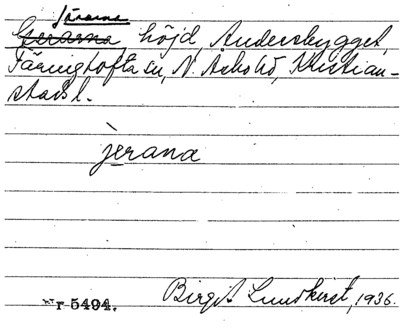 Järarna
Gerarna höjd, Andersbygget,
Färingtofta sn, N. Åsbo hd, Kristian-
stads l.
jerana
Nr 5494. Birgit Lundkvist, 1936.